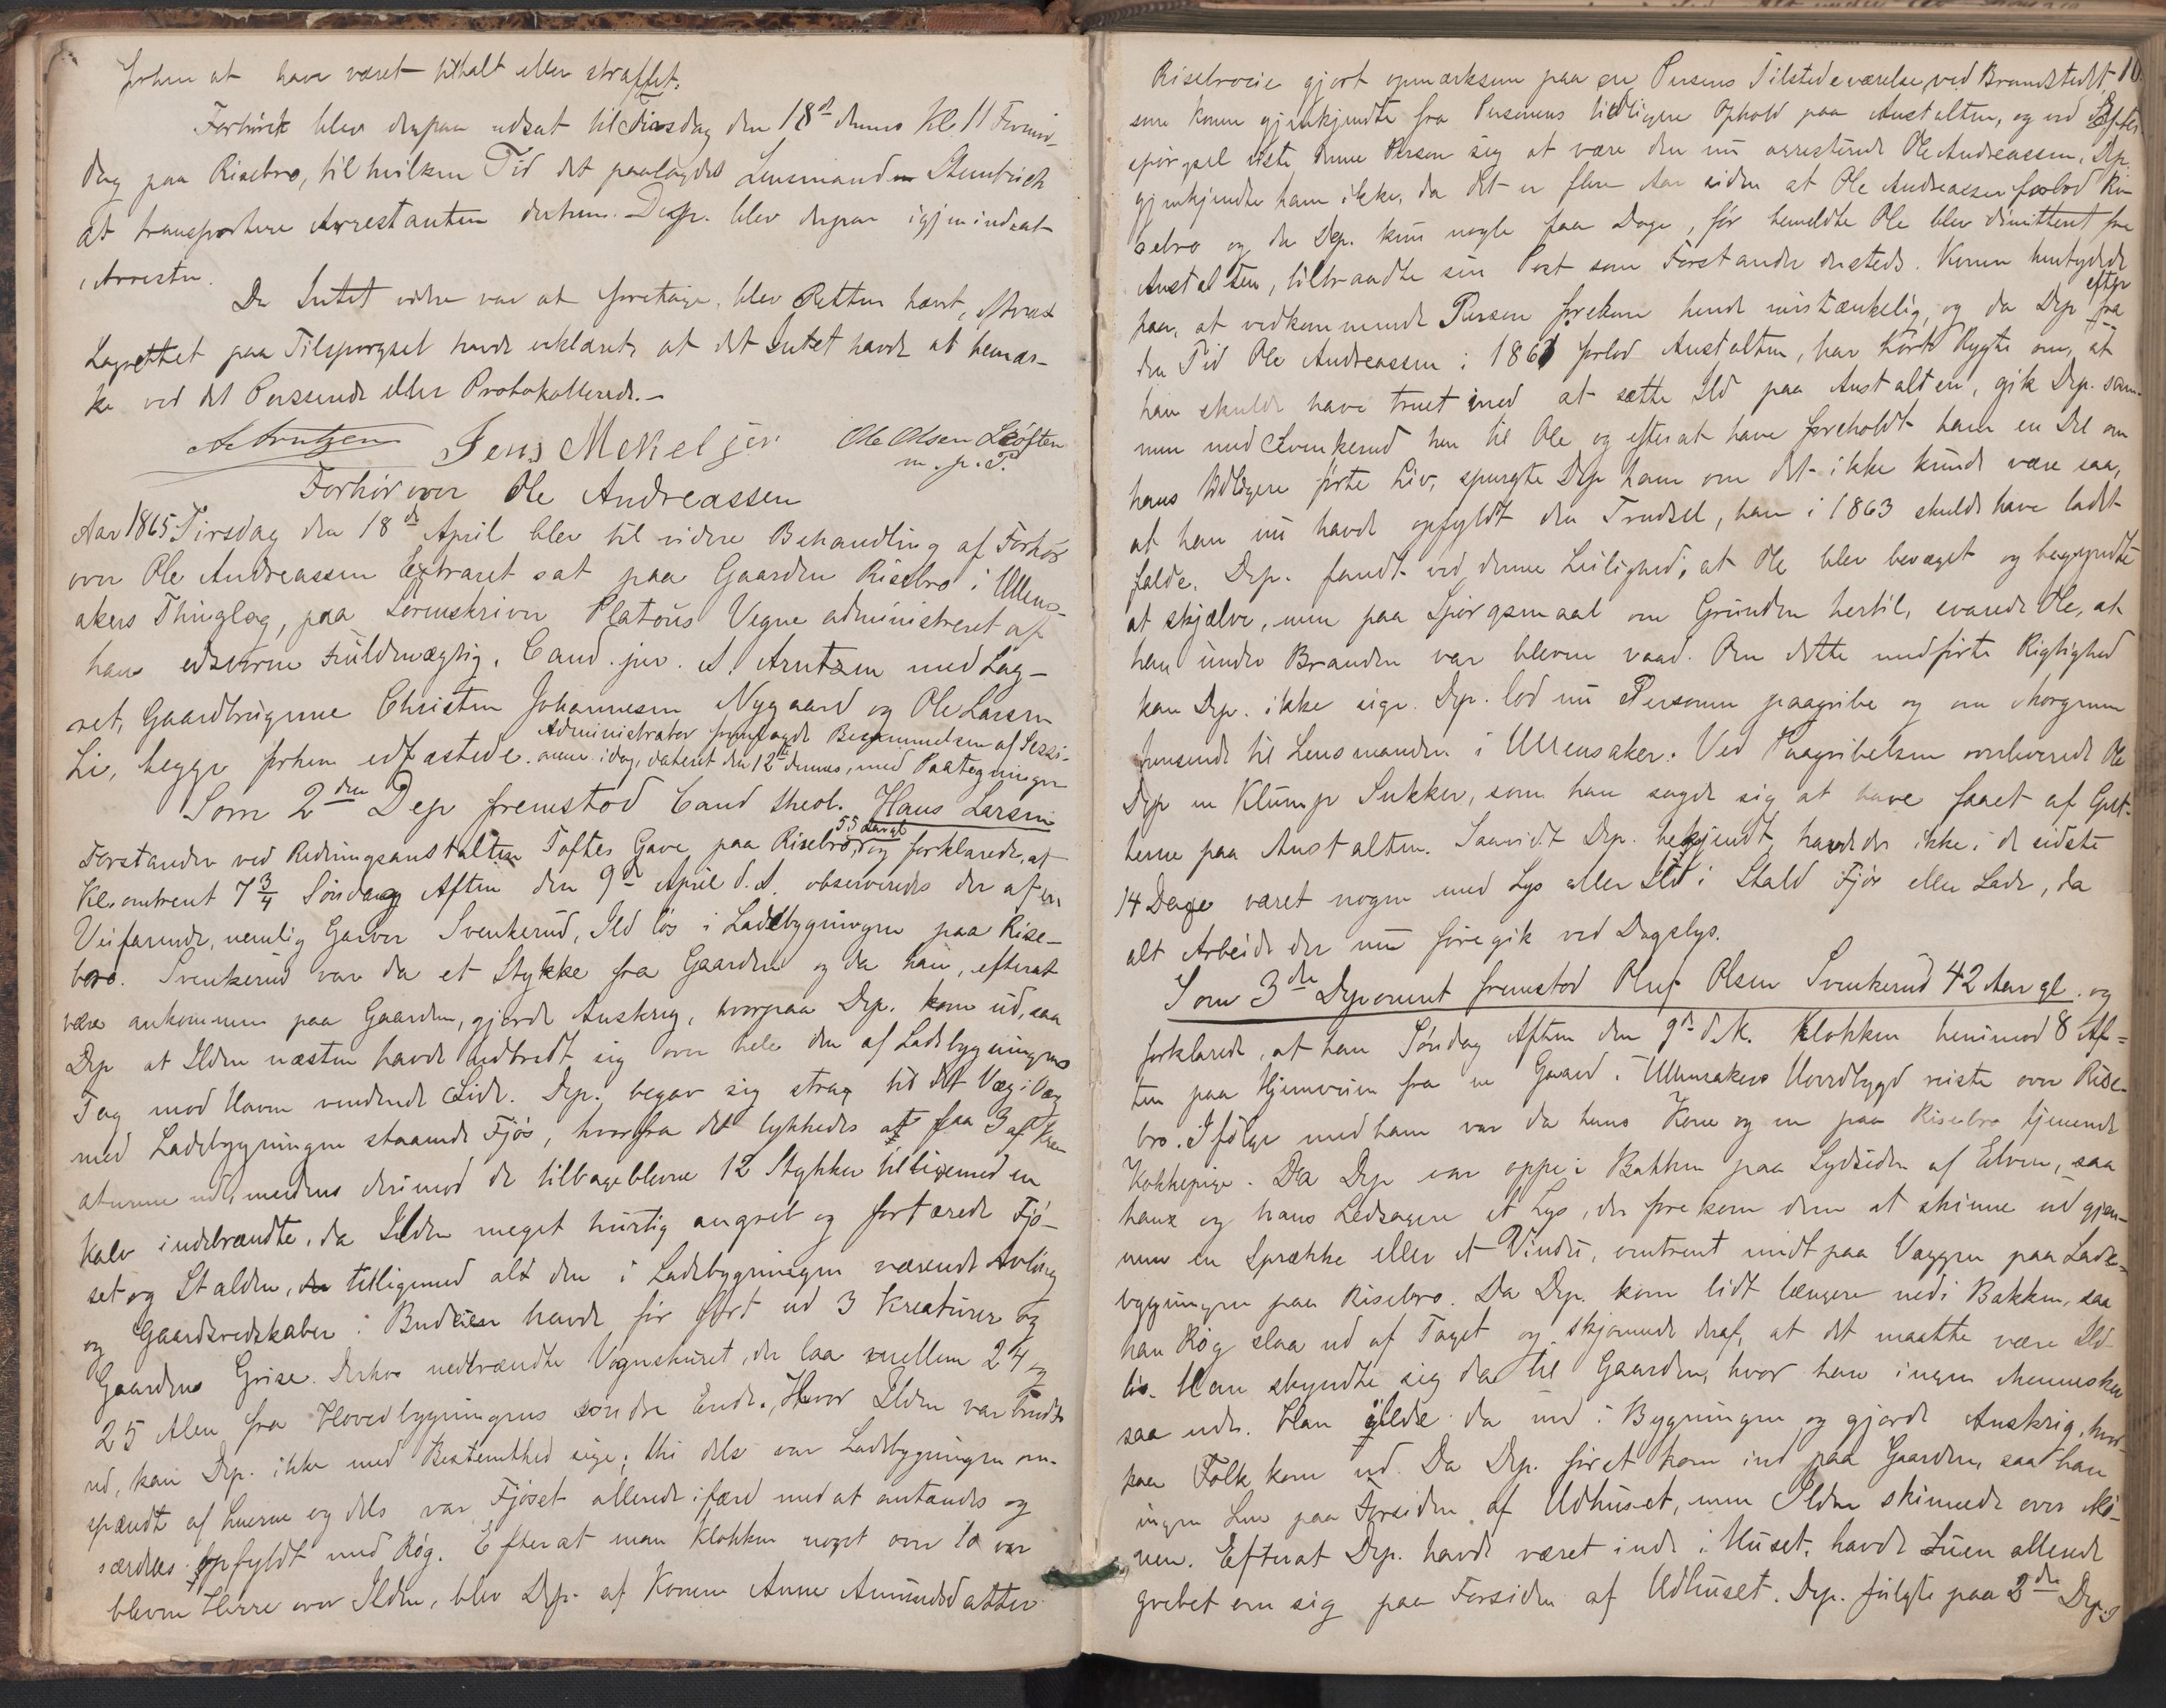 forhen at have været tilhalt eller straffet.
Forhöret blev derpaa udsat til Tirsdag den 18de dennes Kl 11 Formid-
dag paa Risebro, til hvilken Tid det paalagdes Lensmanden
at transportere Arrestanten derhen. Dep. blev derpaa igjen indsat
i Arresten.
Da Intet videre var at foretage, blev Retten hævet,
Lagrettet paa Tilspørgsel havde erklæret, at det Intet havde at bemær-
ke ved det Passerede eller Protokollerede.-
A Arntzen Jens Mikelsen Ole Olsen Løften
m. p. P.
Forhör over Ole Andreassen
Aar 1865 Tirsdag den 18de April blev til videre Behandling af Forhör
over Ole Andreassen Extraret sat paa Gaarden Risebro i Ullens-
akers Thinglag, paa Sorenskriver Platous Vegne administreret af
hans edsvorne Fuldmægtig, Cand. jur. A. Arntzen med Lag-
ret, Gaardbrugerne Christen Johannesen Nygaard og Ole Larsen
Li, begge forhen edfæstede. Administrator fremlagde Berammelsen af Sessi-
onen idag, dateret den 12te dennes, med Paategninger
Som 2den Dep fremstod Cand theol. Hans Larsen
Forstander ved Redningsanstalten Toftes Gave paa Risebro, 55 Aar gl og forklarede, at
Kl. omtrent 7 3/4 Søndag Aften den 9de April d. A. observeredes der af en
Veifarende, nemlig Garver Svenkerud, Ild løs i Ladebygningen paa Rise-
bro. Svenkerud var da et Stykke fra Gaarden og da han, efterat
være ankommen paa Gaarden, gjorde Anskrig, hvorpaa Dep. kom ud, saa
Dep at Ilden næsten havde udbredt sig over hele den af Ladebygningens
Tag mod Haven vendende Side. Dep. begav sig strax til det Væg i Væg
med Ladebygningen staaende Fjøs, hvorfra det lykkedes at faa 3 af Kre-
aturene ud, medens derimod de tilbageblevne 12 Stykker tilligemed en
Kalv indebrændte, da Ilden meget hurtig angreb og fortærede Fjö-
set og Stalden, tilligemed alt den i Ladebygningen værende Avling
og Gaardsredskaber. Budeien havde før ført ud 3 Kreaturer og
Gaardens Grise. Derhos nedbrændte Vognskuret, der laa mellem 24 og
25 Alen fra Hovedbygningens söndre Ende. Hvor Ilden var brudt
ud, kan Dep. ikke med Bestemthed sige; thi dels var Ladebygningen om-
spændt af Luerne og dels var Fjøset allerede ifærd med at antændes og
særdeles opfyldt med Røg. Efterat man Klokken noget over 10 var
bleven Herre over Ilden, blev Dep. af Konen Anne Amundsdatter
10.
Risebroeie gjort opmærksom paa en Persons Tilstedeværelse ved Brandstedet,
som Konen gjenkjendte fra Personens tidligere Ophold paa Anstalten, og ved Efter-
spørgsel viste denne Person sig at være den nu arresterede Ole Andreassen. Dep.
gjenkjendte ham ikke, da det er flere Aar siden at Ole Andreassen forlod Ri-
sebro og da Dep. kun nogle faa Dage, før bemeldte Ole blev dimitteret fra
Anstalten, tiltraadte sin Post som Forstander dersteds. Konen hentydede
paa, at vedkommende Person forekom hende mistænkelig, og da Dep efter fra
den Tid Ole Andreassen i 1861 forlod Anstalten, har hørt Rygte om, at
han skulde have truet med at sætte Ild paa Anstalten, gik Dep. sam-
men med Svenkerud hen til Ole og efterat have foreholdt ham en Del om
hans tidligere førte Liv, spurgte Dep ham om det ikke kunde være saa,
at han nu havde opfyldt den Trudsel, han i 1863 skulde have ladet
falde. Dep. fandt ved denne Leilighed, at Ole blev bevæget og begyndte
at skjælve, men paa Spørgsmaal om Grunden hertil, svarede Ole, at
han under Branden var bleven vaad. Om dette medførte Rigtighed
kan Dep. ikke sige. Dep. lod nu Personen paagribe og om Morgenen
fremsende til Lensmanden i Ullensaker. Ved Paagribelsen overleverede Ole
Dep en Klump Sukker, som han sagde sig at have faaet af Gut-
terne paa Anstalten. Saavidt Dep. bekjendt, havde der ikke i de sidste
14 Dage været nogen med Lys eller Ild i Stald Fjös eller Lade, da
alt Arbeide der nu foregik ved Dagslys.
Som 3die Deponent fremstod Oluf Olsen Svenkerud 42 Aar gl. og
forklarede, at han Søndag Aften den 9de d. M. Klokken henimod 8 Af-
ten paa Hjemveien fra en Gaard i Ullensakers Hovedbygd reiste over Rise-
bro. I følge med ham var da hans Kone og en paa Risebro tjenende
Kokkepige. Da Dep var oppe i Bakken paa Sydsiden af Elven, saa
han og hans Ledsagere et Lys, der forekom dem at skinne ud gjen-
nem en Sprække eller et Vindu, omtrent midt paa Væggen paa Lade-
bygningen paa Risebro. Da Dep. kom lidt længere ned i Bakken, saa
han Røg slaa ud af Taget og skjønnede deraf, at det maatte være Ild-
løs. Han skyndte sig da til Gaarden, hvor han ingen Mennesker
saa ude. Han ilede da ind i Bygningen og gjorde Anskrig, hvor-
paa Folk kom ud. Da Dep. først kom ind paa Gaarden, saa han
ingen Lue paa Forsiden af Udhuset, men Ilden skinnede over Mö-
nen. Efterat Dep. havde været inde i Huset, havde Luen allerede
grebet om sig paa Forsiden af Udhuset. Dep. fulgte paa 2den Dep.s